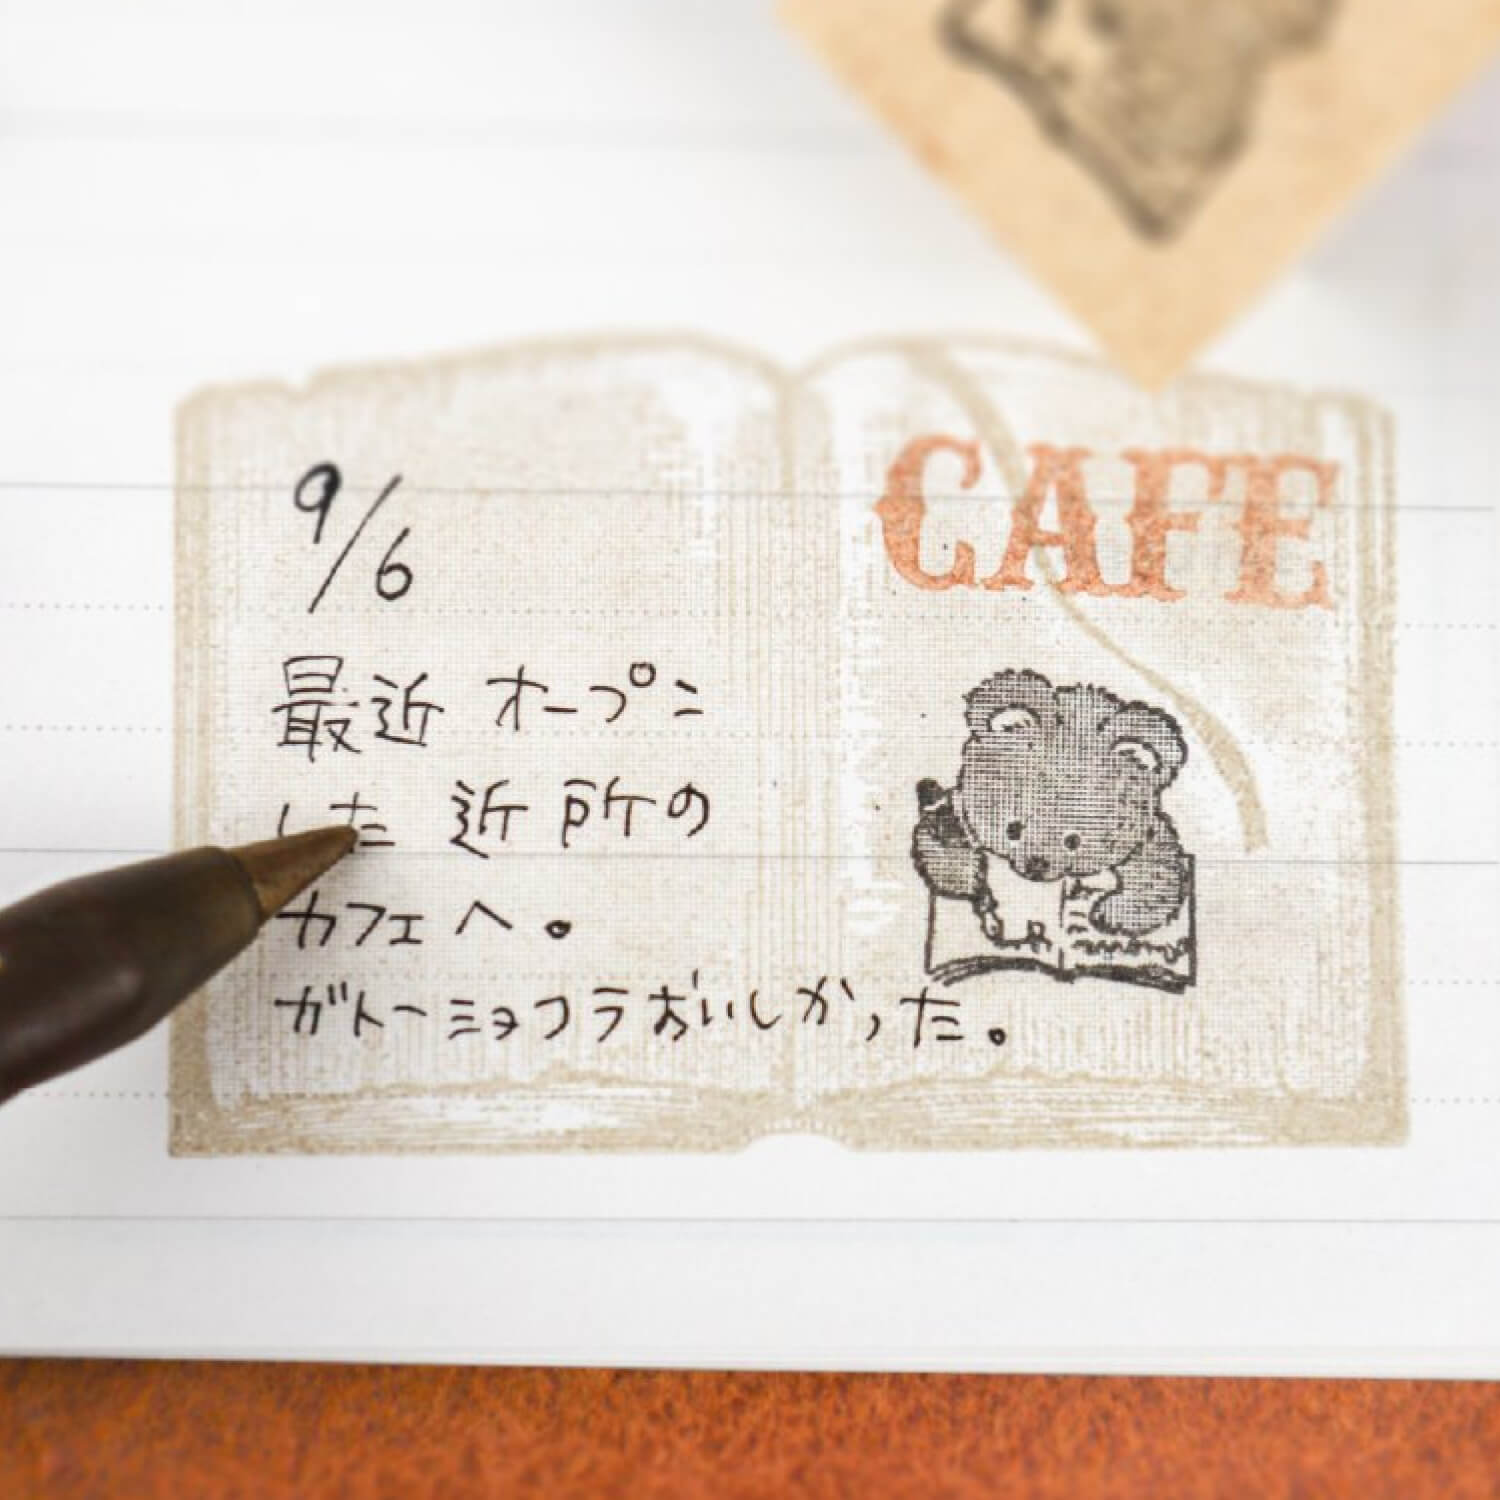 9/6
最近 オープン
した 近所の
カフェへ。
ガトーショコラおいしかった。
CAFE